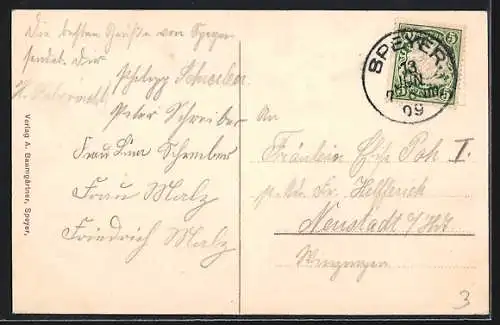 Die besten Grüße von Speyer
sendet Dir
Philipp Schreiber
Peter Schreiber
Frau Lina Schreiber
Frau Malz
Friedrich Malz
Verlag A. Baumgärtner, Speyer.
SPEYER
13
09
5
5
An
Fräulein
Fr. Helfferich
Neustadt a/Hdt
3